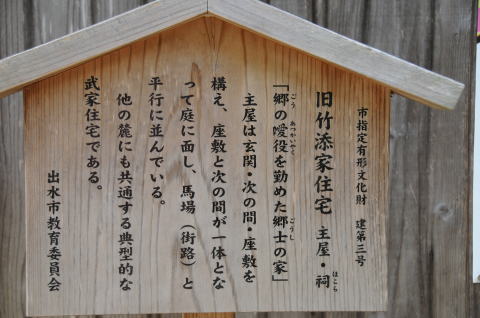 市指定有形文化財 建第三号
旧竹添家住宅 主屋・祠
ほこら
「郷の噯役を勤めた郷士の家」
ごう あつかいやく ごうし
主屋は玄関・次の間・座敷を
構え、座敷と次の間が一体とな
って庭に面し、馬場(街路)と
平行に並んでいる。
他の麓にも共通する典型的な
武家住宅である。
出水市教育委員会